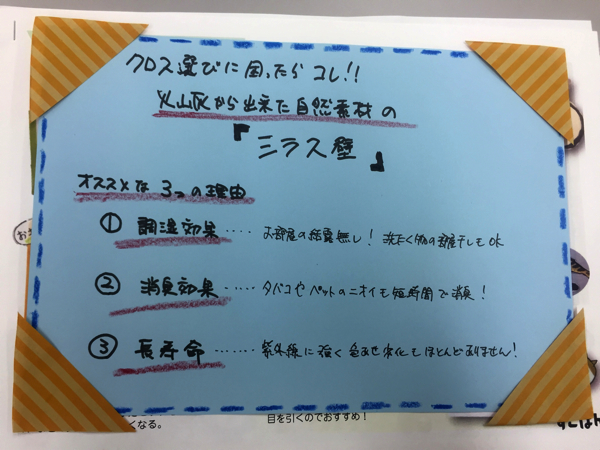 クロス選びに困ったらコレ!!
火山灰から出来た自然素材の
『ミラス壁』
オススメな3つの理由
① 調湿効果‥‥ お部屋の結露無し! 洗たく物の部屋干しもOK
② 消臭効果‥‥‥ タバコやペットのニオイも短時間で消臭!
③ 長寿命‥‥‥ 紫外線に強く色あせ劣化もほとんどありません!
くなる。
目を引くのでおすすめ!